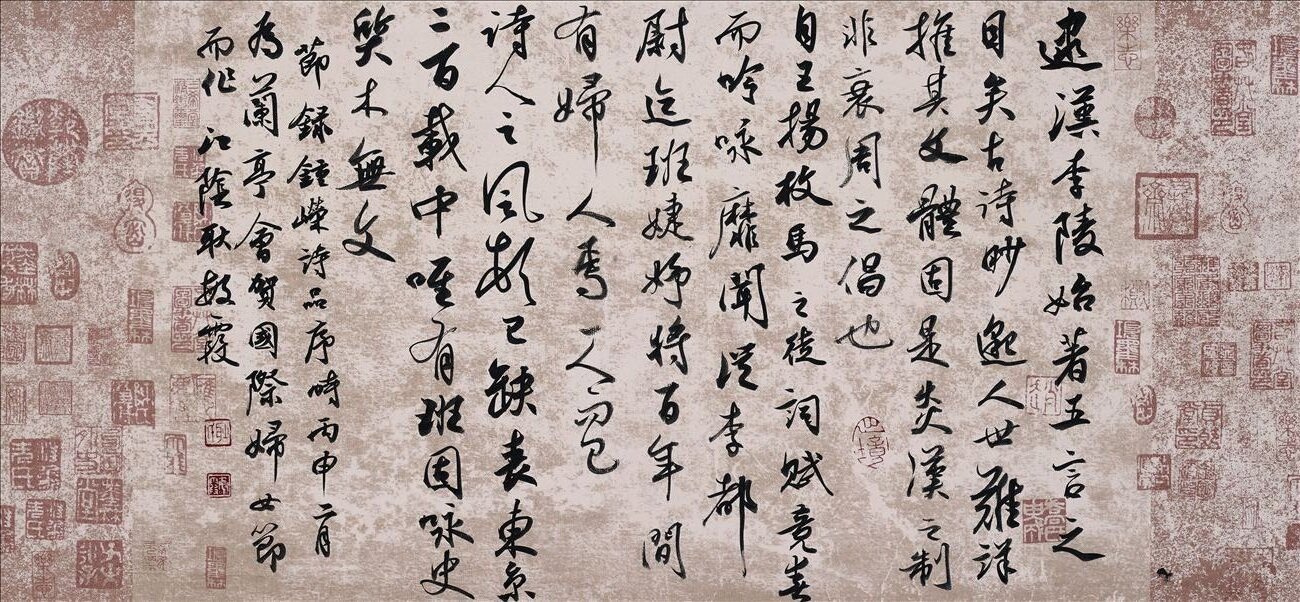 逮漢李陵始著五言之
目矣古詩眇邈人世難詳
推其文體固是炎漢之制
非衰周之倡也
自王揚枚馬之徒詞賦竟爽
而吟咏靡聞從李都
尉迄班婕妤將百年間
有婦人焉一人而已
詩人之風頓已缺喪東京
二百載中唯有班固咏史
質木無文
節錄鍾嶸詩品序時丙申二月
為蘭亭會賀國際婦女節
而作江陰耿敏霞